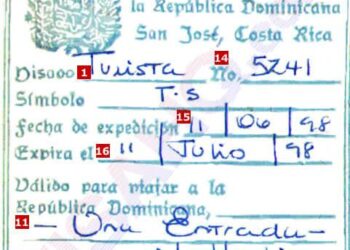 la República Dominicana
San José, Costa Rica
Visado 1 Turista 14 No. 5241
Símbolo T.S
Fecha de expedición 15 11 | 06 | 98
Expira el 16 11 | Julio | 98
Válido para viajar a la
República Dominicana,
11 - Una Entrada -